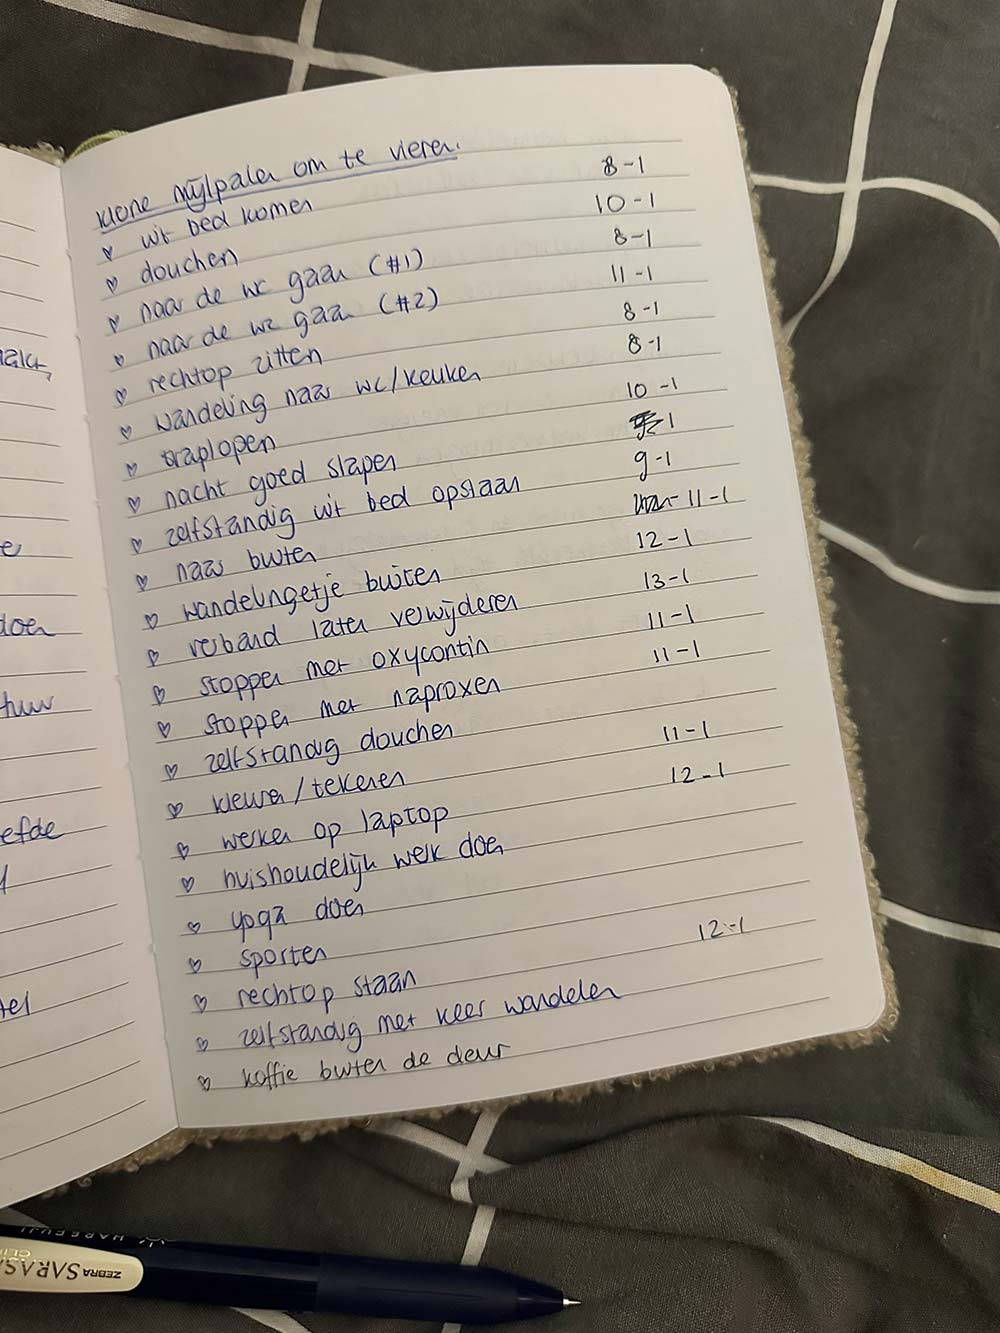 doen
efde
kleine mijlpalen om te vieren.
uit bed komen 8-1
douchen 10-1
naar de wc gaan (#1) 8-1
naar de wc gaan (#2) 11-1
rechtop zitten 8-1
wandeling naar wc/keuken 8-1
traplopen 10-1
nacht goed slapen -1
zelfstandig uit bed opstaan 9-1
naar buiten 11-1
wandelingetje buiten 12-1
verband laten verwijderen 13-1
stoppen met oxycontin 11-1
stoppen met naproxen 11-1
zelfstandig douchen
kleuren/tekenen 11-1
werken op laptop 12-1
huishoudelijk werk doen
yoga doen
sporten
rechtop staan 12-1
zelfstandig met Kees wandelen
koffie buiten de deur
ZEBRA SARASA